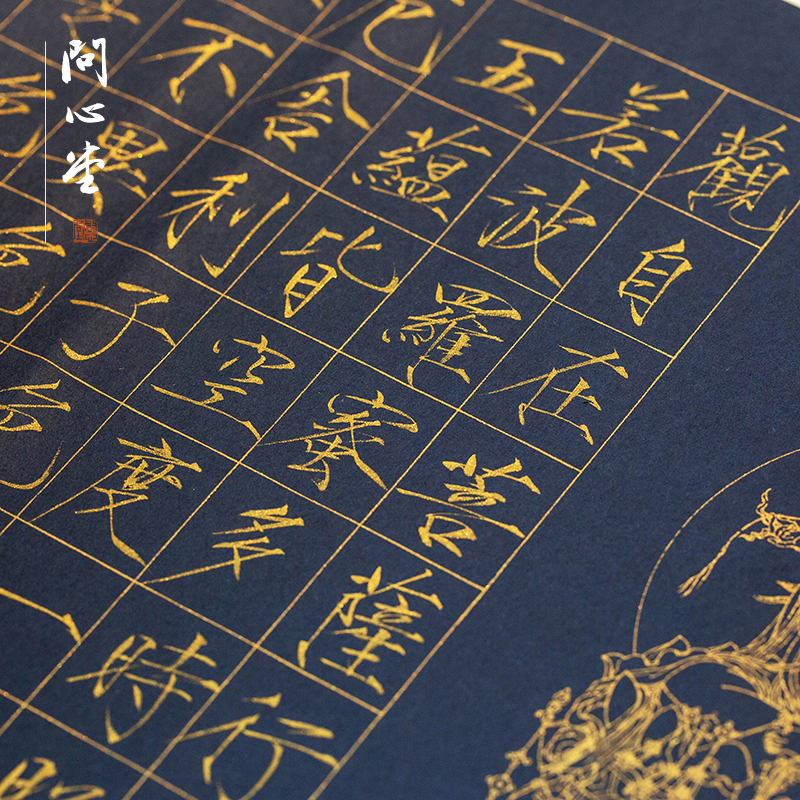 問心堂
觀自在菩薩行
若波羅蜜多時
五蘊皆空度一
舍利子色
不異